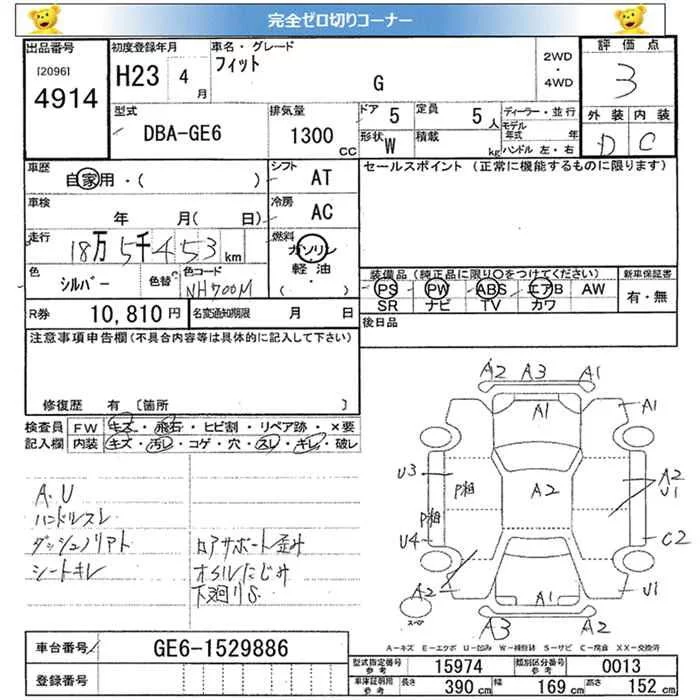 完全ゼロ切りコーナー
出品番号
[2096]
4914
初度登録年月
H23 4月
車名・グレード
フィット
G
2WD
・
4WD
評価点
3
型式
DBA-GE6
排気量
1300 CC
ドア 5
定員 5人
形状 W
積載 kg
ディーラー・並行
モデル年式 年
ハンドル 左・右
外装 内装
D C
車歴
自家用・( )
シフト AT
セールスポイント (正常に機能するものに限ります)
車検
年 月( 日)
冷房 AC
走行
18万5千453km
燃料
ガソリン
軽油
( ・ )
色
シルバー
色替
色コード
NH700M
装備品 (純正品に限り○をつけてください)
PS PW ABS エアB AW
SR ナビ TV カワ
新車保証書
有・無
R券 10,810円
名変通知期限 月 日
後日品
注意事項申告欄 (不具合内容等は具体的に記入して下さい)
修復歴 有 [箇所 ]
検査員記入欄
FW キズ・飛石・ヒビ割・リペア跡・×要
内装 キズ・汚レ・コゲ・穴・スレ・キレ・破レ
A.U
ハンドルスレ
ダッシュノリアト
シートキレ
ロアサポート歪ミ
オイルにじみ
下廻りS
A2 A3 A1
A1
A1
U3
P相
A2
A2
U1
P相
U4
C2
A2
A1
U1
スペア
A3 A2
A-キズ E-エクボ U-凹み W-補修跡 S-サビ C-腐食 XX-交換済
車台番号
GE6-1529886
登録番号
型式指定番号 参考 15974
類別区分番号 参考 0013
車庫証明用 参考
長さ 390cm 幅 169cm 高さ 152cm